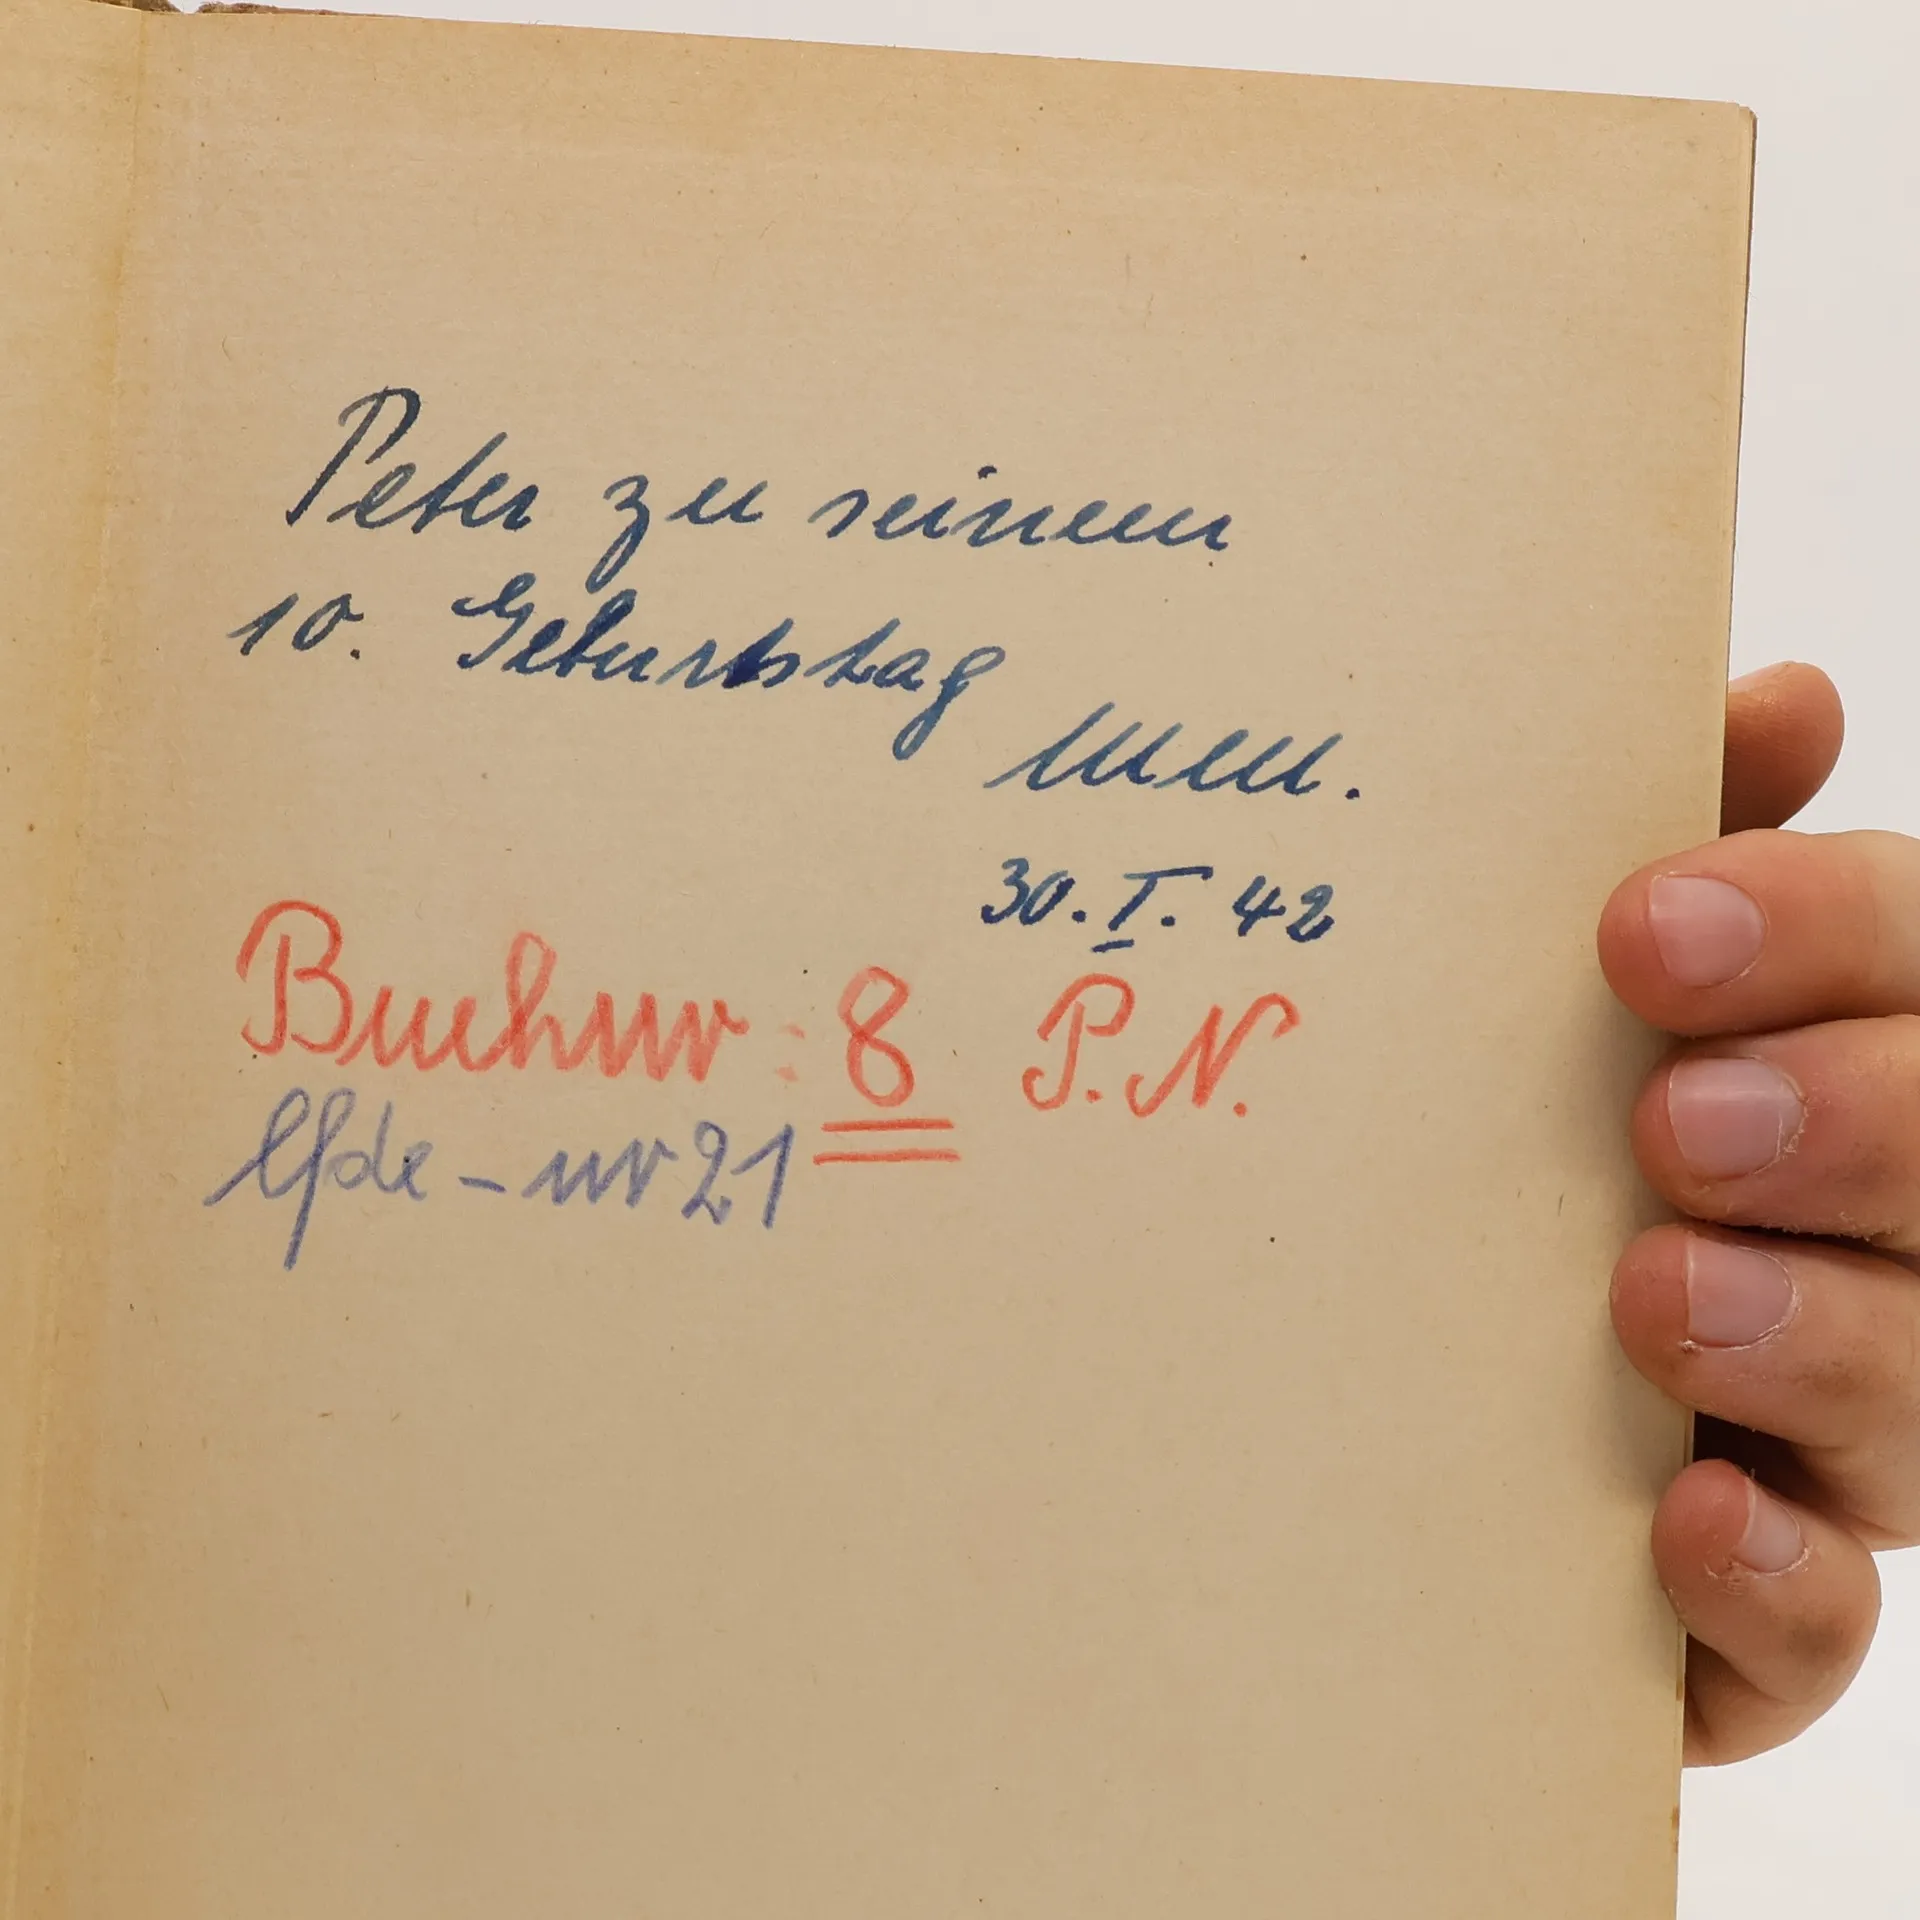 Peter zu seinem
10. Geburtstag
30. I. 42
Buchnr: 8 P. N.
lfde - nr 21